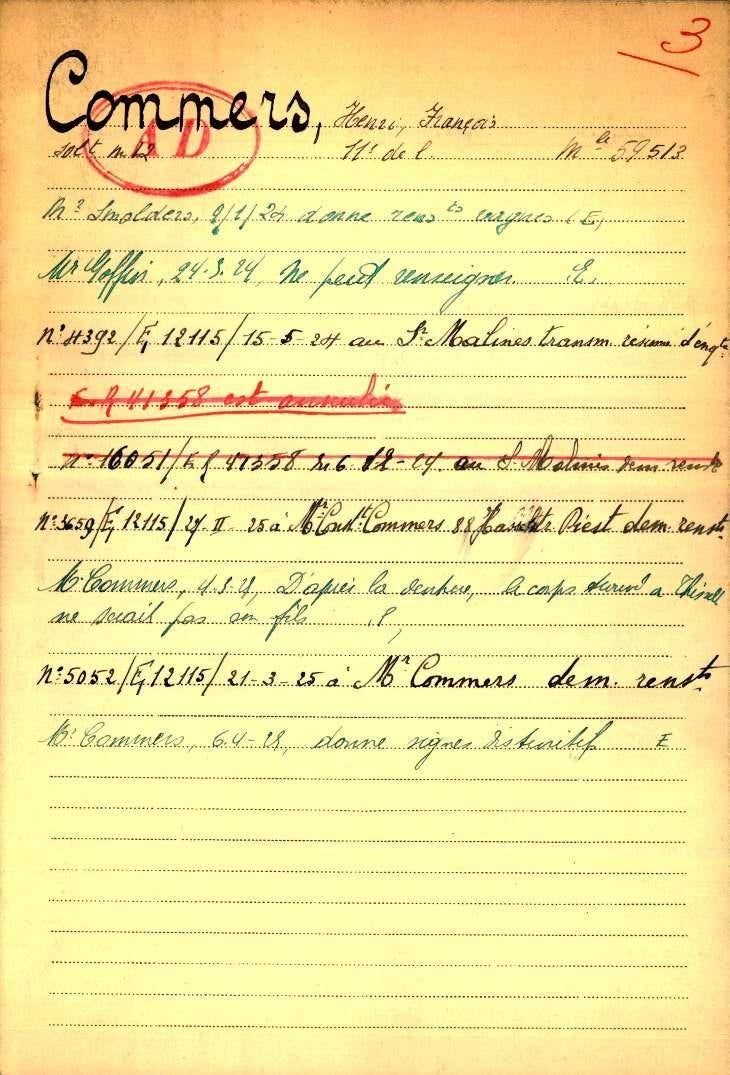 3
Commers, Henri, François
AD
solt m 12 11e de l. Mle 59513
Mr Smolders, 9/1/24 donne rensts vagues (E,
Mr Goffin, 24-3-24, ne peut renseigner. E.
No 4392/E, 12115/15-5-24 au Sr Malines transm. résumé d'enqte
E.R 41358 est annulé
no 16051/E R 41358 12-24 au S. Malines dem rensts
No 3659/E, 12115/27-II-25 à Mr Commers 88 Diest dem. rensts
Mr Commers, 4.3.25, D'après la denture, le corps a
ne serait pas son fils
No 5052/E, 12115/21-3-25 à Mr Commers dem. rensts
Mr Commers, 6.4-25, donne signes distinctifs E